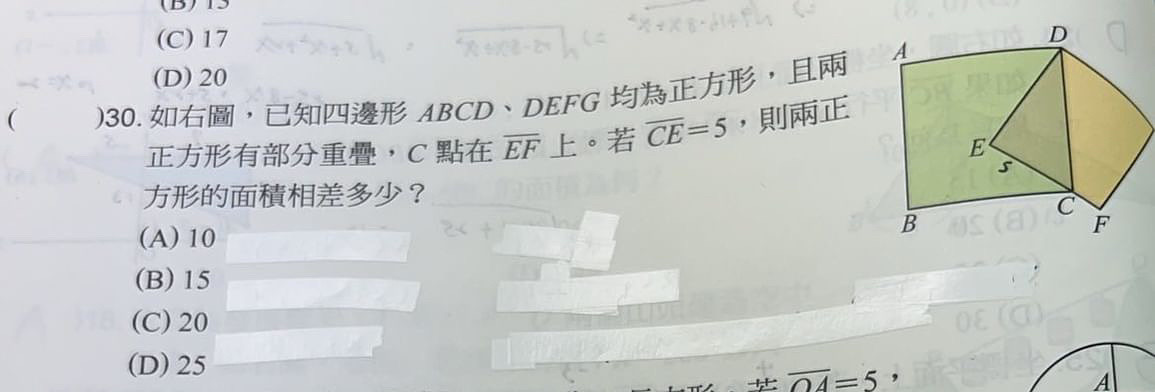 (B) 15
(C) 17
(D) 20
( )30. 如右圖，已知四邊形 ABCD、DEFG 均為正方形，且兩
正方形有部分重疊，C 點在 EF 上。若 CE=5，則兩正
方形的面積相差多少？
(A) 10
(B) 15
(C) 20
(D) 25
A
D
E
5
B
C
F
若 OA=5，
A